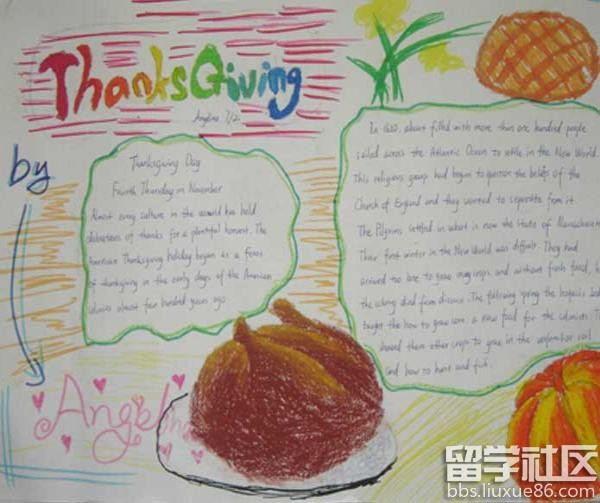 ThanksGiving
Angelina 7/2
by
Angelina
Thanksgiving Day
Fourth Thursday in November
Almost every culture in the world has held
celebrations of thanks for a plentiful harvest. The
American Thanksgiving holiday began as a feast
of thanksgiving in the early days of the American
colonies almost four hundred years ago.
In 1620, a boat filled with more than one hundred people
sailed across the Atlantic Ocean to settle in the New World.
This religious group had begun to question the beliefs of the
Church of England and they wanted to separate from it.
The Pilgrims settled in what is now the state of Massachusetts
Their first winter in the New World was difficult. They had
arrived too late to grow many crops, and without fresh food, h
the colony died from disease. The following spring the Iroquois Ind
taught the how to grow corn, a new food for the colonists. T
them other crops to grow in the unfamiliar soil
and how to hunt and fish.
留学社区
bbs.liuxue86.com